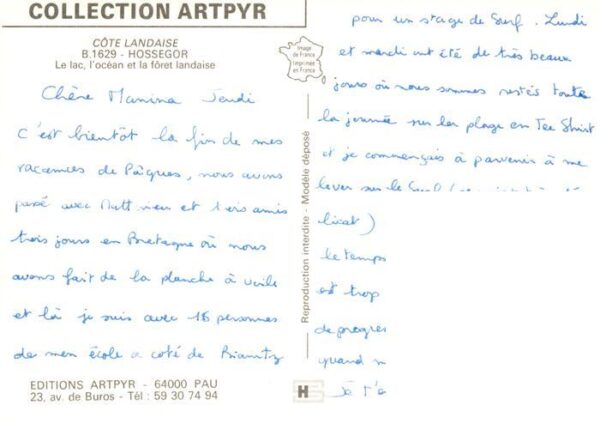 COLLECTION ARTPYR
CÔTE LANDAISE
B.1629 - HOSSEGOR
Le lac, l'océan et la fôret landaise
Image
de France
Imprimée
en France
Reproduction interdite - Modèle déposé
Chère Manina Jeudi
C'est bientôt la fin de mes
vacances de Pâques, nous avons
passé avec Matthieu et trois amis
trois jours en Bretagne où nous
avons fait de la planche à voile
et là je suis avec 16 personnes
de mon école a coté de Biarritz
pour un stage de Surf. Lundi
et mardi ont été de très beaux
jours où nous sommes restés toute
la journée sur la plage en Tee Shirt
et je commençais à parvenir à me
lever sur le Surf
licat)
le temps
est trop
de progres
quand
EDITIONS ARTPYR - 64000 PAU
23, av. de Buros - Tél : 59 30 74 94